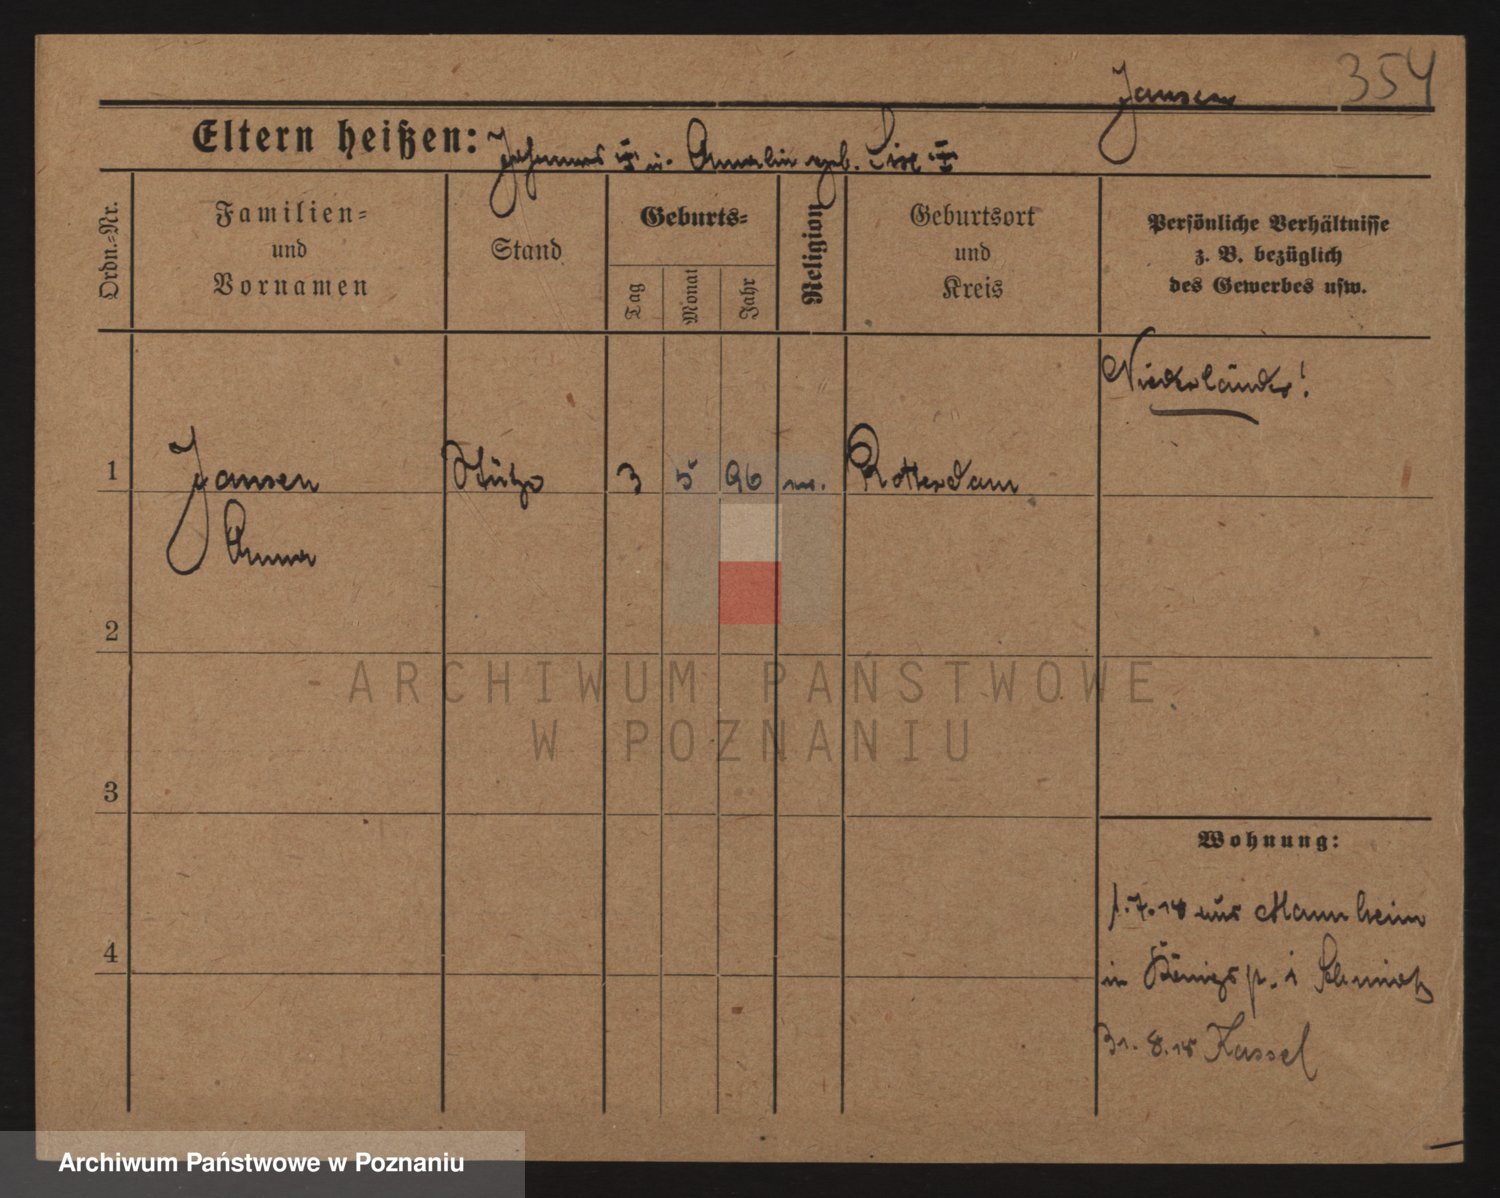 354
Jansen
Eltern heißen: Johannes u. geb.
Ordn.-Nr.
Familien-
und
Vornamen
Stand
Geburts-
Tag
Monat
Jahr
Religion
Geburtsort
und
Kreis
Persönliche Verhältnisse
z. B. bezüglich
des Gewerbes usw.
Niederländer!
1 Jansen Stütze 3 5 96 Rotterdam
Anna
2
3
4
Wohnung:
1.7.18 aus Mannheim
in Königspl.
31.8.18 Kassel
ARCHIWUM PAŃSTWOWE
W POZNANIU
Archiwum Państwowe w Poznaniu